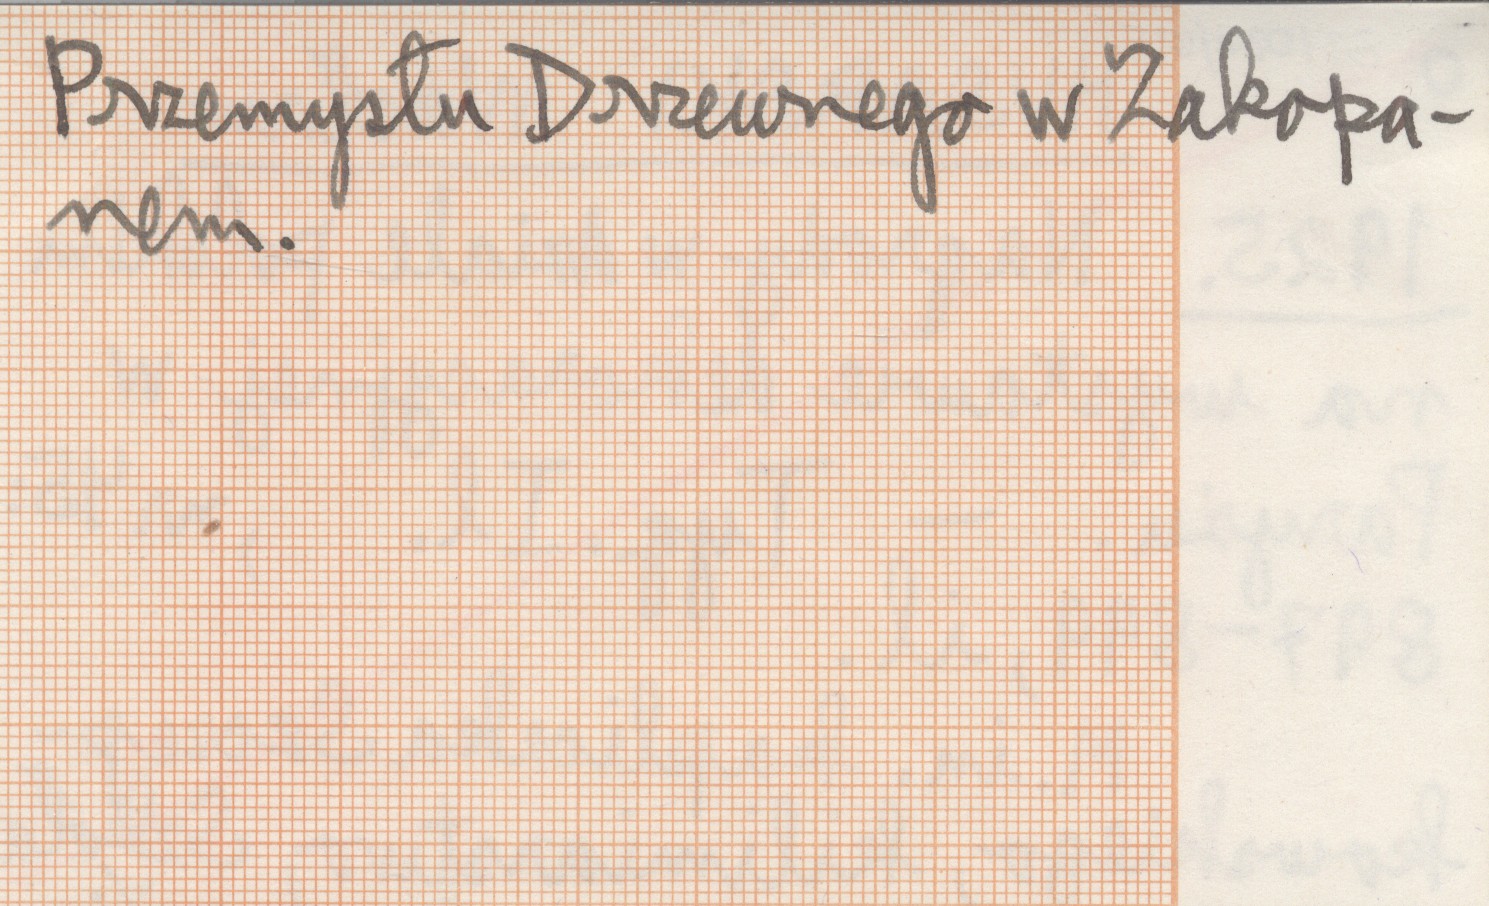 Przemysłu Drzewnego w Zakopa-
nem.